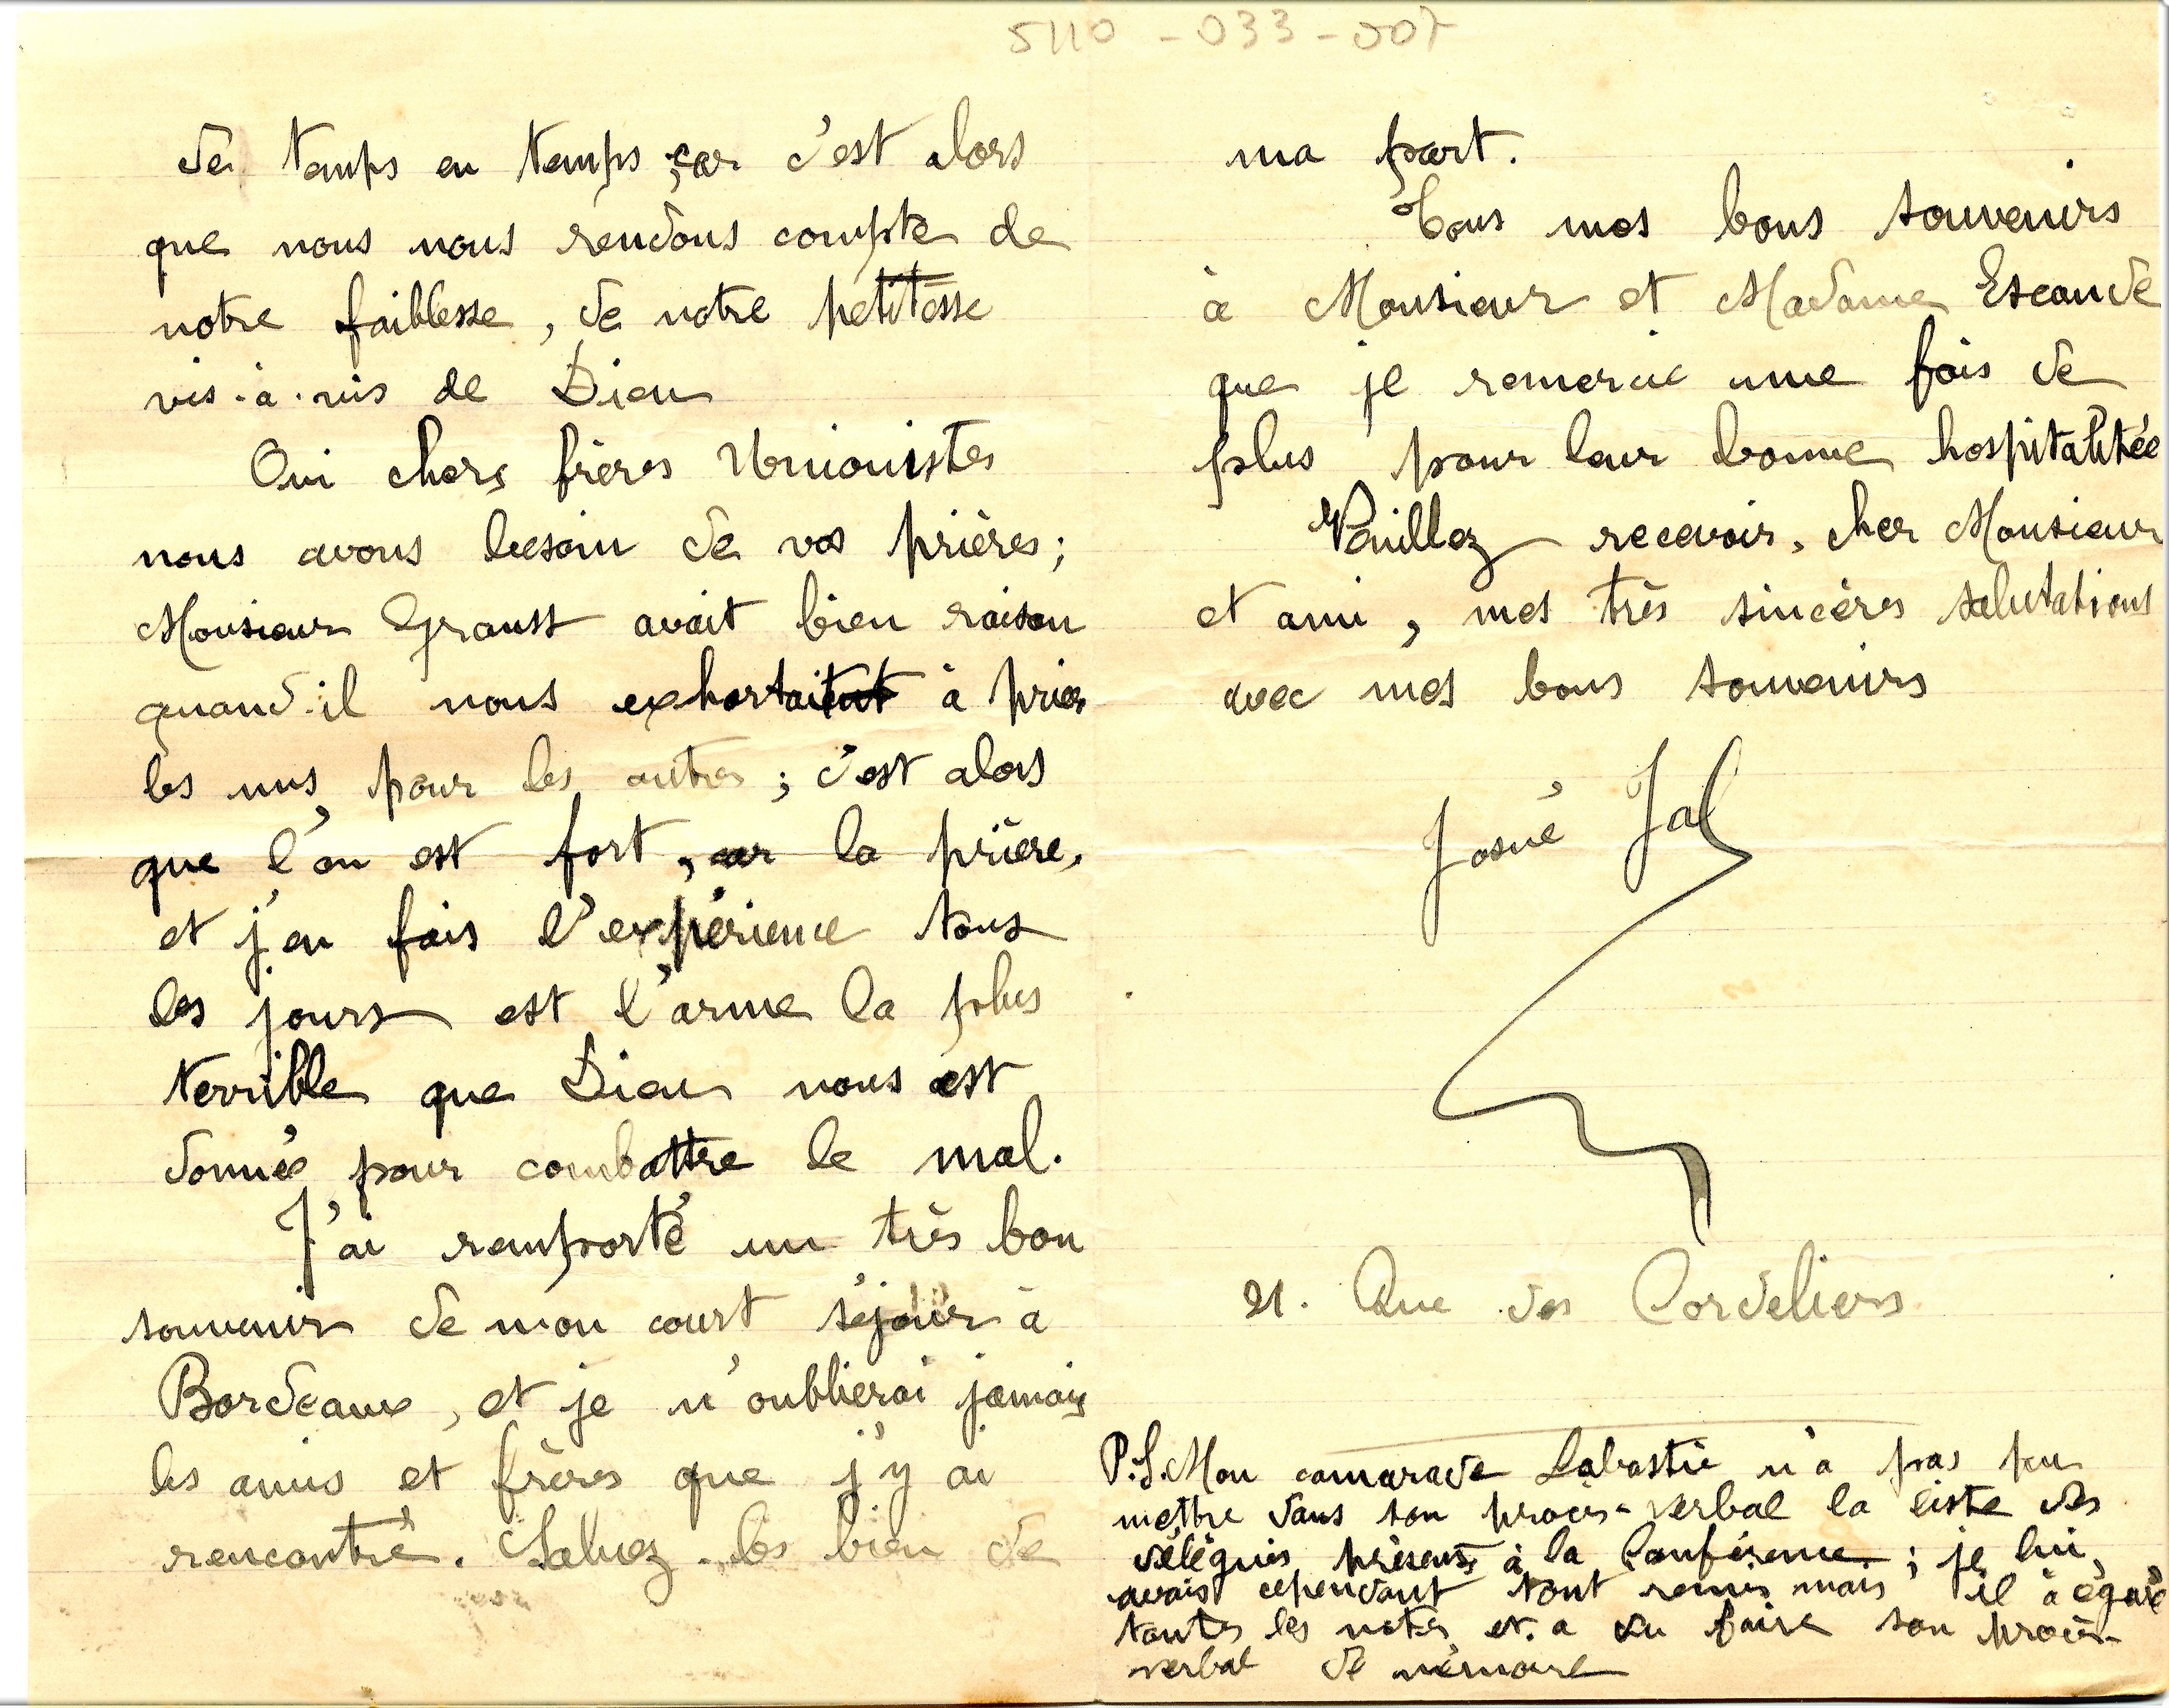 5110-033-007
de temps en temps, car c'est alors
que nous nous rendons compte de
notre faiblesse, de notre petitesse
vis-à-vis de Dieu
Oui chers frères Unionistes
nous avons besoin de vos prières;
Monsieur avait bien raison
quand-il nous exhortait à prier
les uns pour les autres; c'est alors
que l'on est fort, car la prière,
et j'en fais l'expérience tous
les jours est l'arme la plus
terrible que Dieu nous est
donnée pour combattre le mal.
J'ai remporté un très bon
souvenir de mon court séjour à
Bordeaux, et je n'oublierai jamais
les amis et frères que j'y ai
rencontré. Saluez-les bien de
ma part.
Tous mes bons souvenirs
à Monsieur et Madame Escande
que je remercie une fois de
plus pour leur bonne hospitalitée
Veuillez recevoir, cher Monsieur
et ami, mes très sincères salutations
avec mes bons souvenirs
Josué Jal
21. Rue des Cordeliers
P.S. Mon camarade Labastie n'a pas pu
mettre dans son procès-verbal la liste des
délégués présents à la Conférence; je lui
avais cependant tout remis mais il à égaré
toutes les notes et a du faire son procès-
verbal de mémoire